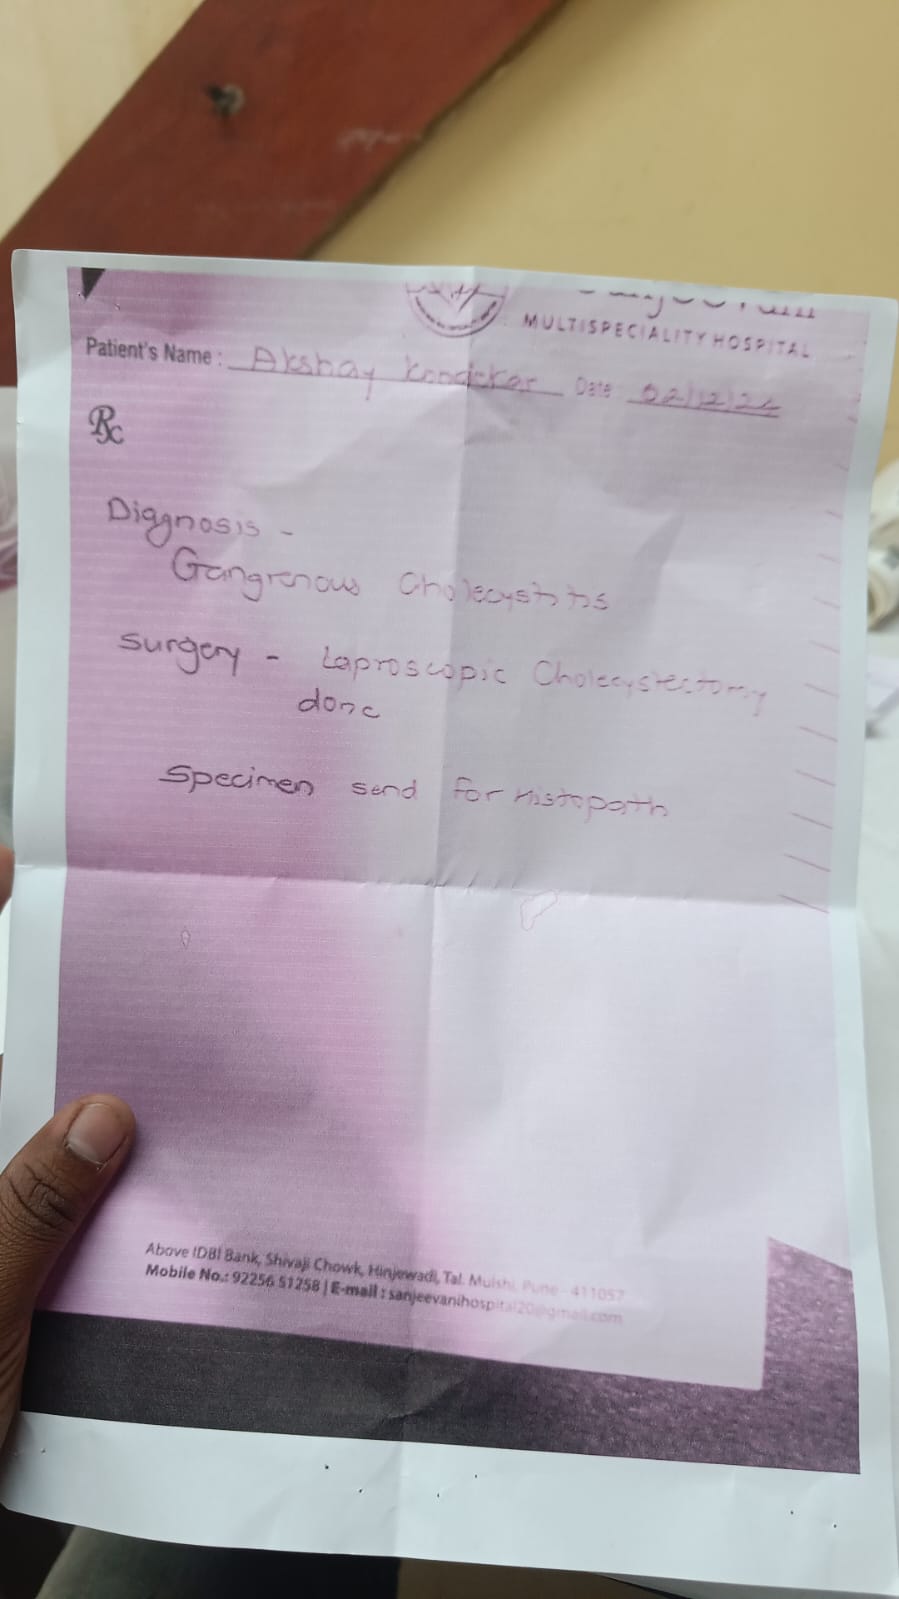 MULTISPECIALITY HOSPITAL
Patient's Name : Akshay Date : 02/12/24
Rx
Diagnosis -
Gangrenous Cholecystitis
Surgery - Laproscopic Cholecystectomy
done
Specimen send for Histopath
Above IDBI Bank, Shivaji Chowk, Hinjewadi, Tal. Mulshi, Pune - 411057
Mobile No.: 92256 51258 | E-mail : sanjeevanihospital20@gmail.com